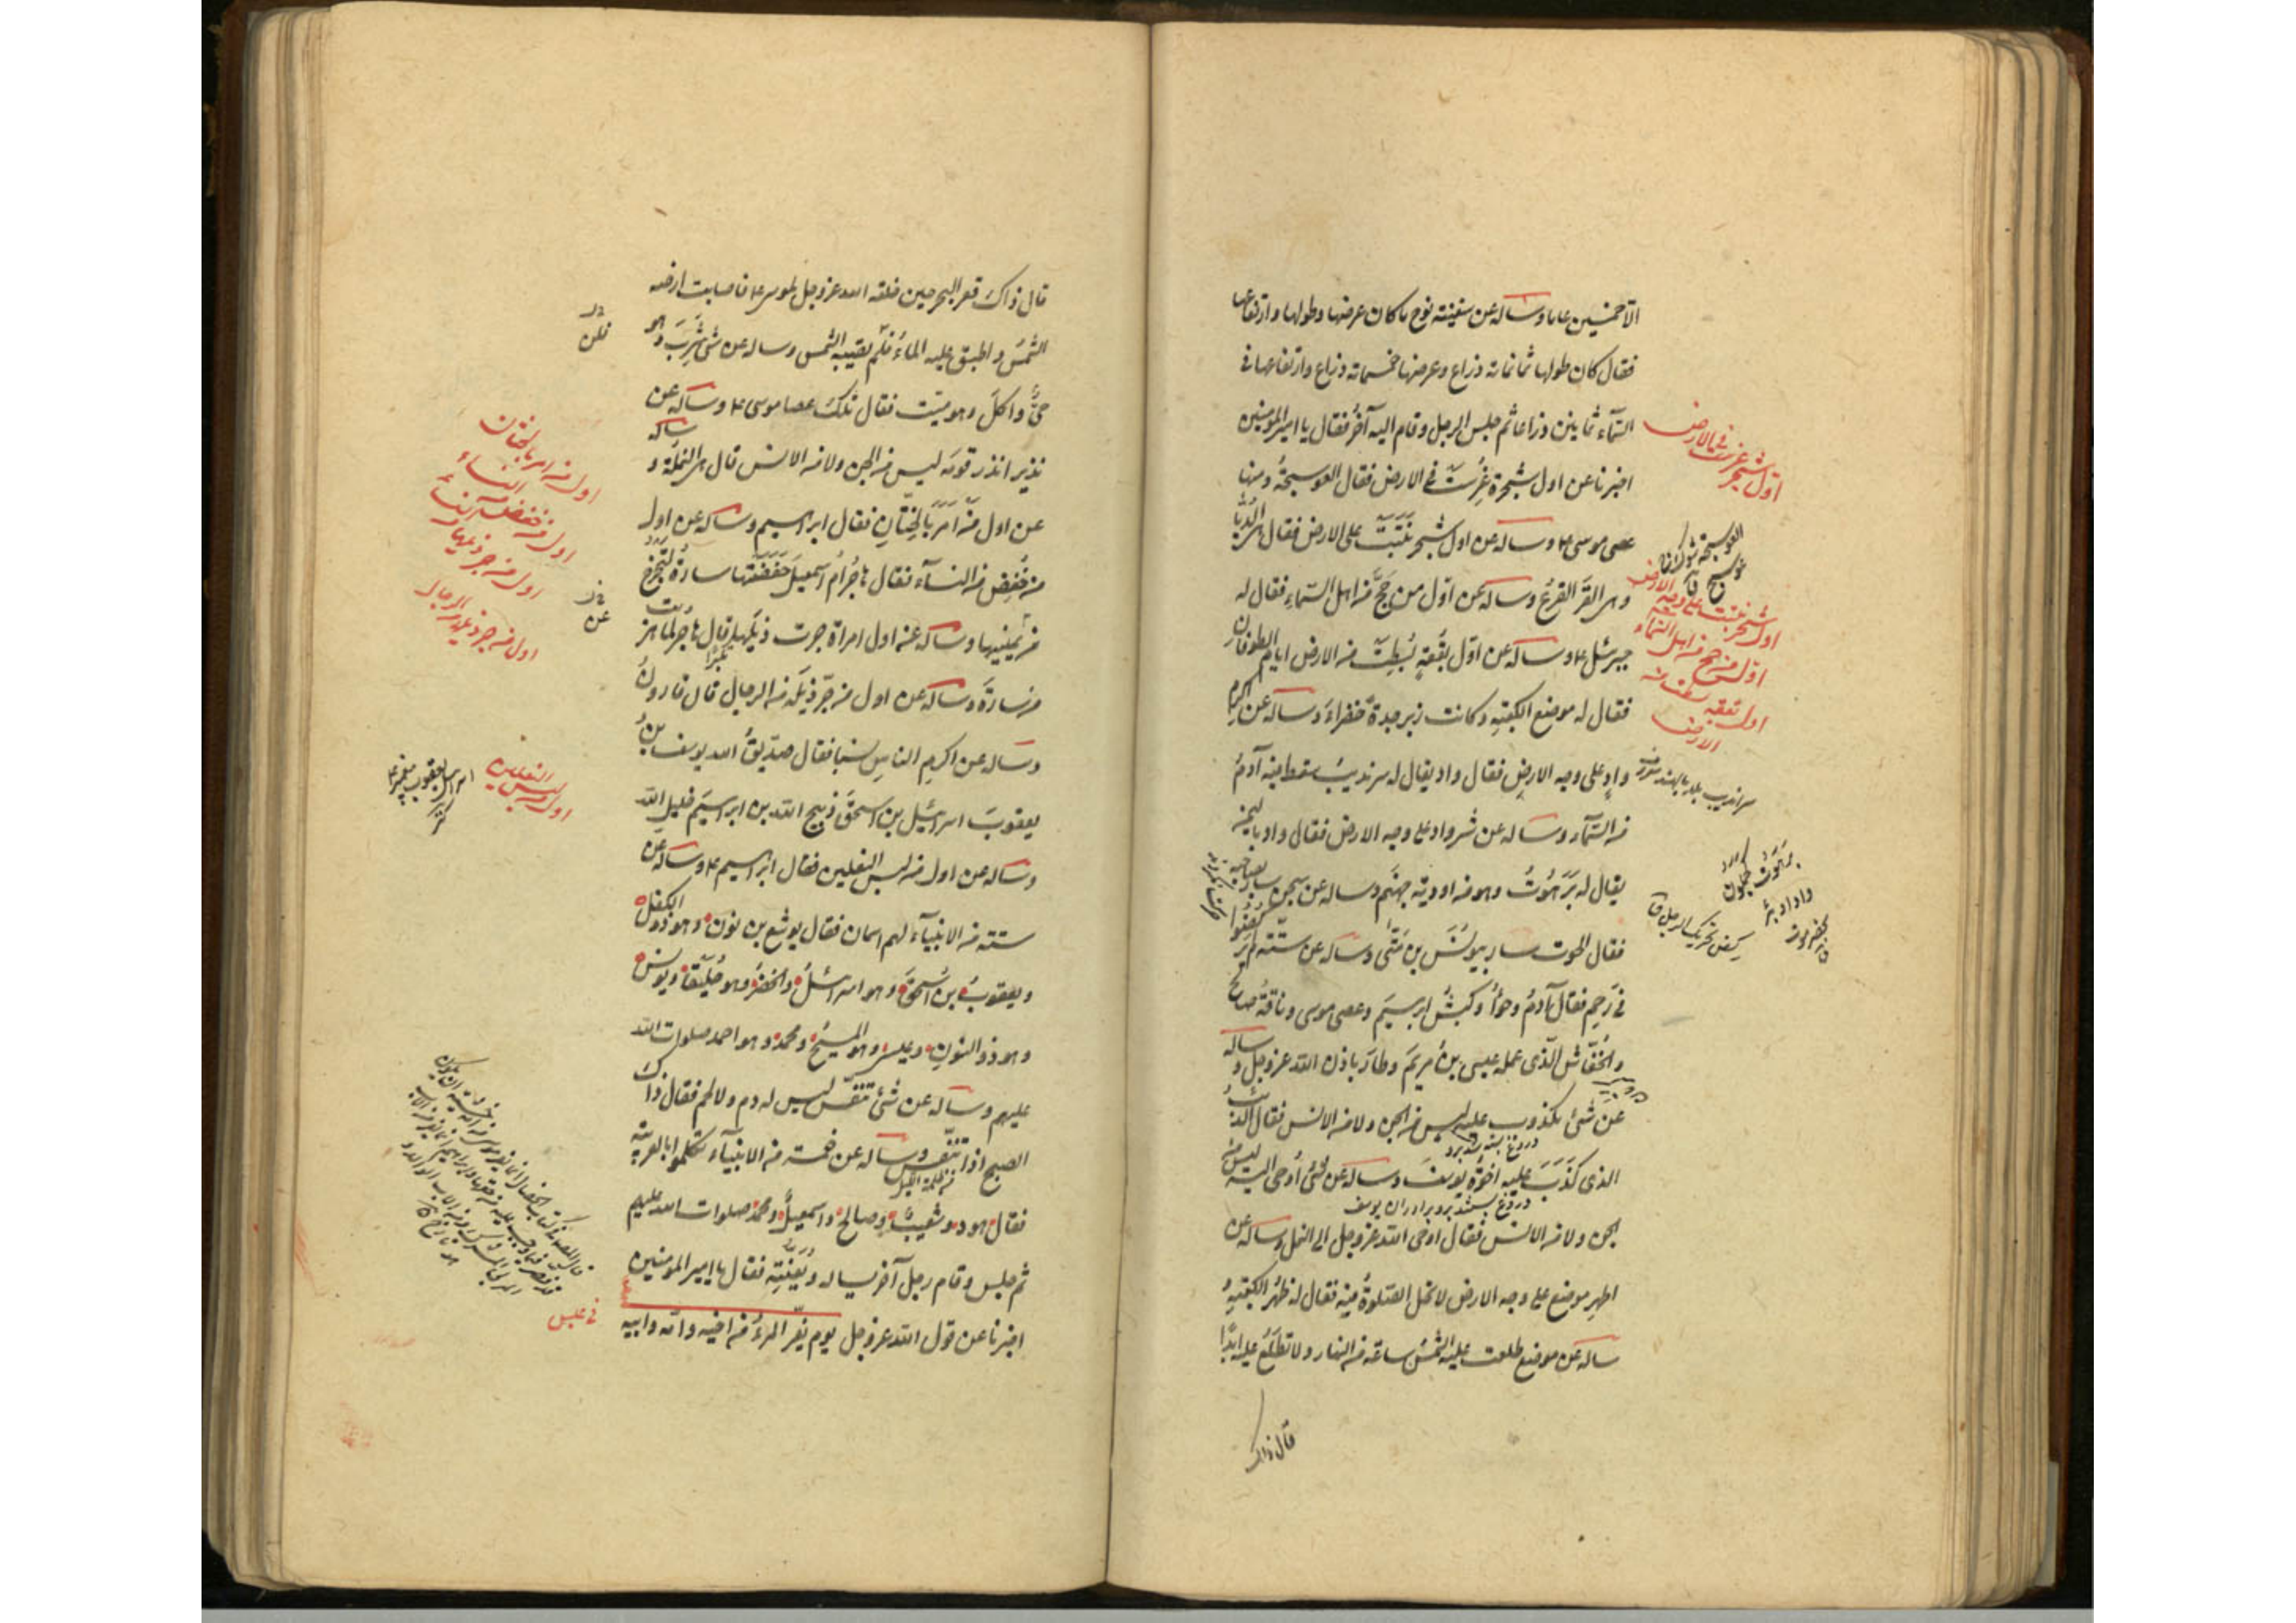 الا خمسين عاما وساله عن سفينة نوح ما كان عرضها وطولها وارتفاعها
فقال كان طولها ثمانمائة ذراع وعرضها خمسمائة ذراع وارتفاعها في
السّمآء ثمانين ذراعا ثم جلس الرجل وقام اليه آخرُ فقال يا امير المؤمنين
اخبرنا عن اول شجرة غُرِسَتْ في الارض فقال العوسجةُ ومنها
عصى موسى ع وساله عن اول شجر نَبَتَتْ على الارض فقال هى الدُّبّا
وهى القرع وساله عن اوّل من حَجَّ من اهل السّماءِ فقال له
جبرئيل ع وساله عن اوّل بقعةٍ بُسِطَتْ من الارض ايام الطوفان
فقال له موضع الكعبةِ وكانت زبرجدةً خضراءَ وساله عن اكرمِ
وادٍ على وجه الارضِ فقال واد يقال له سرنديبُ سقط فيه آدمُ
من السّمآء وساله عن شر واد على وجه الارض فقال واد باليمن
يقال له بَرَهُوتُ وهو من اودية جهنّم وساله عن سجن سار بصاحبه
فقال الحوت سار بيونُسَ بن مَتّى وساله عن ستّة لم يركضوا
في رَحِمٍ فقال آدمُ وحوّأُ وكبشُ ابرهيمَ وعصى موسى وناقةُ صالح
والخُفّاش الّذى عمله عيسى بنُ مريمَ وطارَ باذن الله عز وجل وساله
عن شئ مكذوب عليه ليس من الجن ولا من الانس فقال الذئب
الذى كَذَبَ عليه اخوة يوسفَ وساله عن شئ أوحى اليه ليس من
الجن ولا من الانس فقال اوحى الله عز وجل الى النحل وساله عن
اطهر موضع على وجه الارض لا تحل الصّلوةُ فيه فقال له ظهرُ الكعبةِ و
ساله عن موضع طلعت عليه الشّمسُ ساعة من النهار ولا تطلعُ عليه ابدًا
قال ذاك
اوّل شجر غرست في الارض
اول شجر نبتت على وجه الارض
اوّل من حج من اهل السّماء
اول بقعه بسطت من
الارض
قال ذاكَ قعر البحر حين فلقه الله عز وجل لموسى ع فاصابت ارضه
الشّمسُ واطبق عليه الماءُ فلم تصيبه الشّمس وساله عن شئ شَرِبَ وهو
حىٌّ واكلَ وهو ميّت فقال تلكَ عصا موسى ع وساله عن
نذير انذر قومَه ليس من الجن ولا من الانس قال هى النملة وساله
عن اول من اَمَرَ بالخِتَانِ فقال ابرهيم وساله عن اول
من خُفِضَ من النسآء فقال هاجرُ ام اسمعيلَ خَفَضَتْها سارةُ لتخرج
من يمينها وساله عن اول امرأة جرت ذيلها قال هاجر لما هربت
من سارةَ وساله عن اول من جرّ ذيلَه من الرجال قال قارونُ
وساله عن اكرمِ الناسِ نسبا فقال صدّيقُ الله يوسف بنُ
يعقوبَ اسرائيل بن اسحقَ ذبيح الله بن ابرهيمَ خليلِ اللهِ
وساله عن اول من لبس النعلين فقال ابرهيم ع وساله عن
ستة من الانبيآء لهم اسمان فقال يوشع بن نون وهو ذو الكفل
ويعقوبُ بن اسحقَ وهو اسرائيلُ والخضرُ وهو حلّيقا ويونس
وهو ذو النونِ وعيسى وهو المسيحُ ومحمدٌ وهو احمد صلوات الله
عليهم وساله عن شئ تنفّس ليس له دم ولا لحم فقال ذاك
الصبح اذا تنفّس وساله عن خمسة من الانبيآء تكلموا بالعربية
فقال هود وشعيب وصالح واسمعيل ومحمد صلوات الله عليهم
ثم جلس وقام رجل آخر يساله ويُعَنِّتُه فقال يا امير المؤمنين
اخبرنا عن قول الله عز وجل يوم يفرّ المرءُ من اخيه وامّه وابيه
اول من امر بالختان
اول من خفض من النساء
اول من جر ذيلها
اول من جر ذيله من الرجال
اول من لبس النعلين